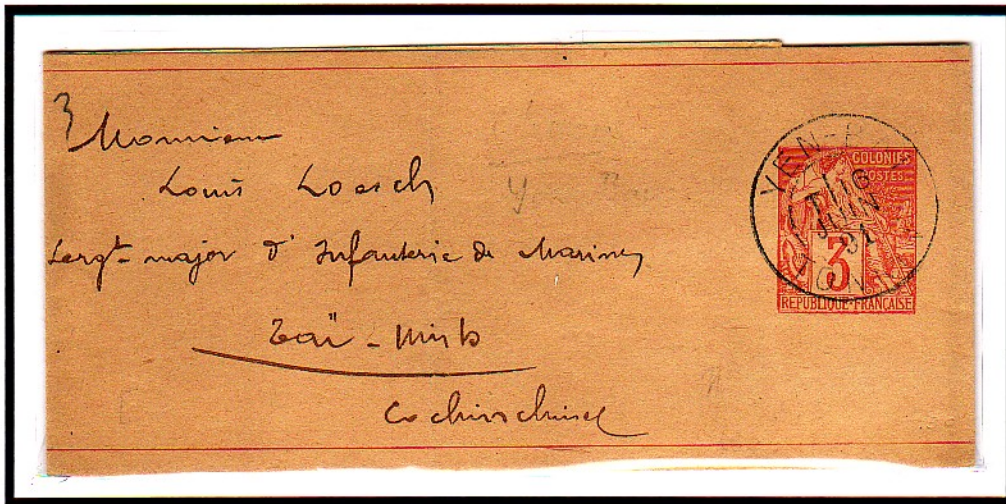 Monsieur
Louis Loesch
Sergt-major d'Infanterie de Marine
Taï-Ninh
Cochinchine
YEN-BAY
16
JUIN
91
TONKIN
COLONIES
POSTES
3
REPUBLIQUE FRANÇAISE